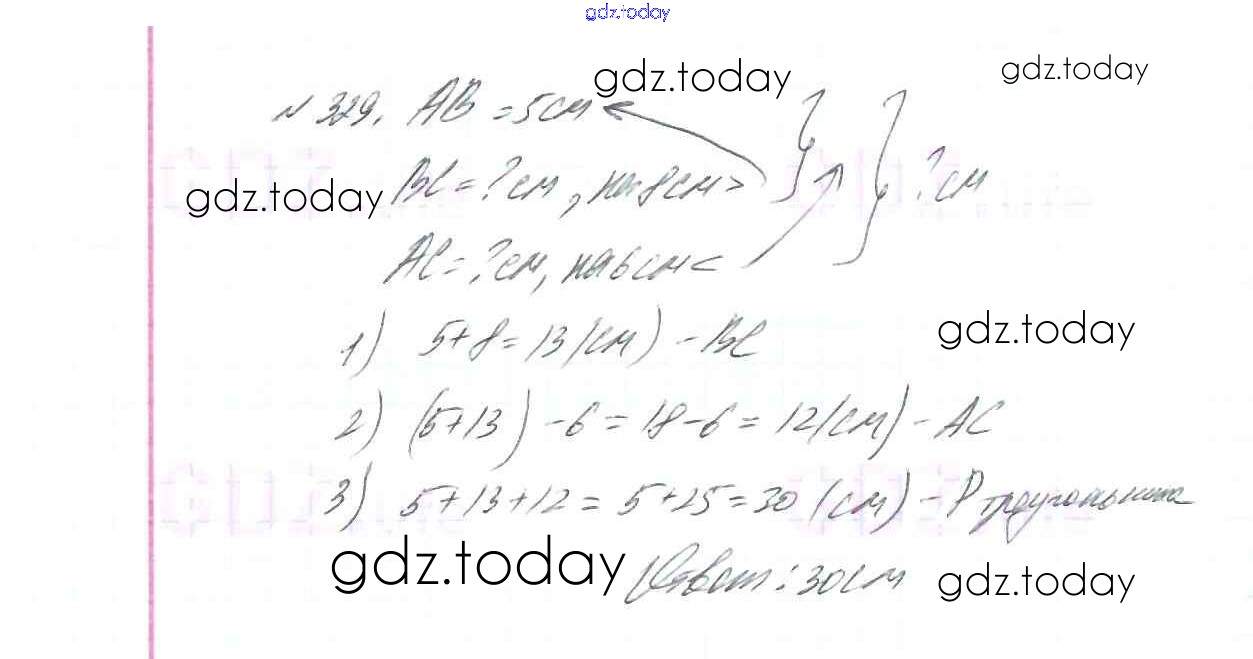 gdz.today
gdz.today
gdz.today
№ 329. AB = 5см
BC = ? см, на 8см >
? см
gdz.today
AC = ? см, на 6см <
1) 5+8 = 13 (см) - BC
gdz.today
2) (5+13) - 6 = 18 - 6 = 12 (см) - AC
3) 5 + 13 + 12 = 5 + 25 = 30 (см) - P треугольника
gdz.today
Ответ: 30см
gdz.today